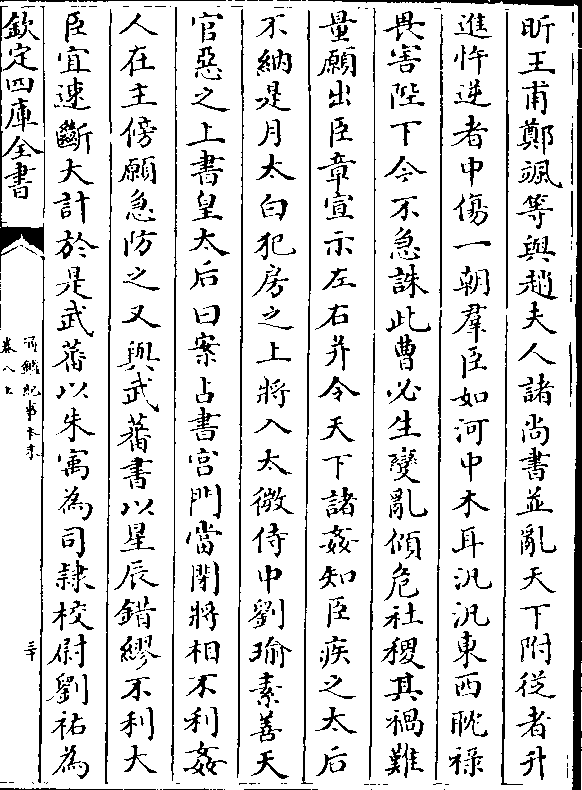 昕王甫鄭颯等與趙夫人諸尚書並亂天下附從者升
進忤逆者中傷一朝羣臣如河中木耳汎汎東西耽祿
畏害陛下今不急誅此曹必生變亂傾危社稷其禍難
量願出臣章宣示左右并令天下諸姦知臣疾之太后
不納是月太白犯房之上將入太微侍中劉瑜素善天
官惡之上書皇太后曰案占書宫門當閉將相不利姦
人在主傍願急防之又與武蕃書以星辰錯繆不利大
臣宜速斷大計於是武蕃以朱㝢為司隸校尉劉祐為
欽定四庫全書
通鑑紀事本末
卷八上
三十